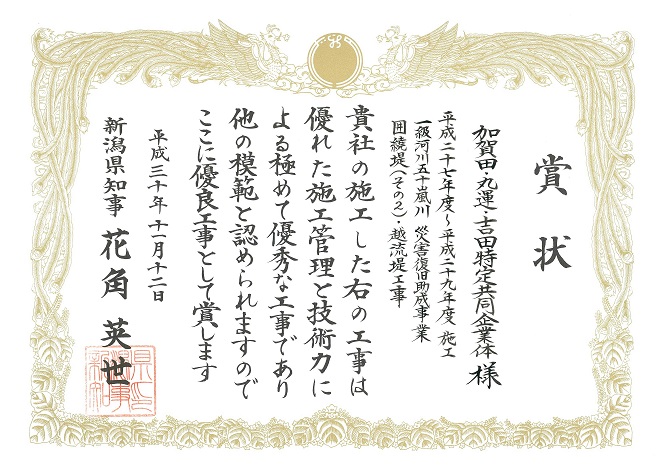 賞状
加賀田・丸運・吉田特定共同企業体 様
平成二十七年度～平成二十九年度 施工
一級河川五十嵐川 災害復旧助成事業
囲繞堤（その2）・越流堤工事
貴社の施工した右の工事は
優れた施工管理と技術力に
よる極めて優秀な工事であり
他の模範と認められますので
ここに優良工事として賞します
平成三十年十一月十二日
新潟県知事 花角英世